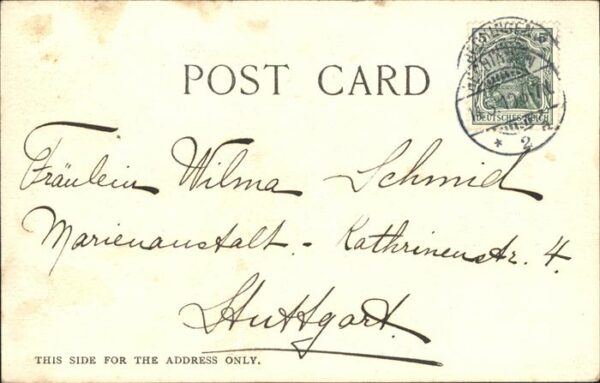 POST CARD
DEUTSCHES REICH
* 2
Fräulein Wilma Schmid
Marienanstalt. - Kathrinenstr. 4.
Stuttgart.
THIS SIDE FOR THE ADDRESS ONLY.